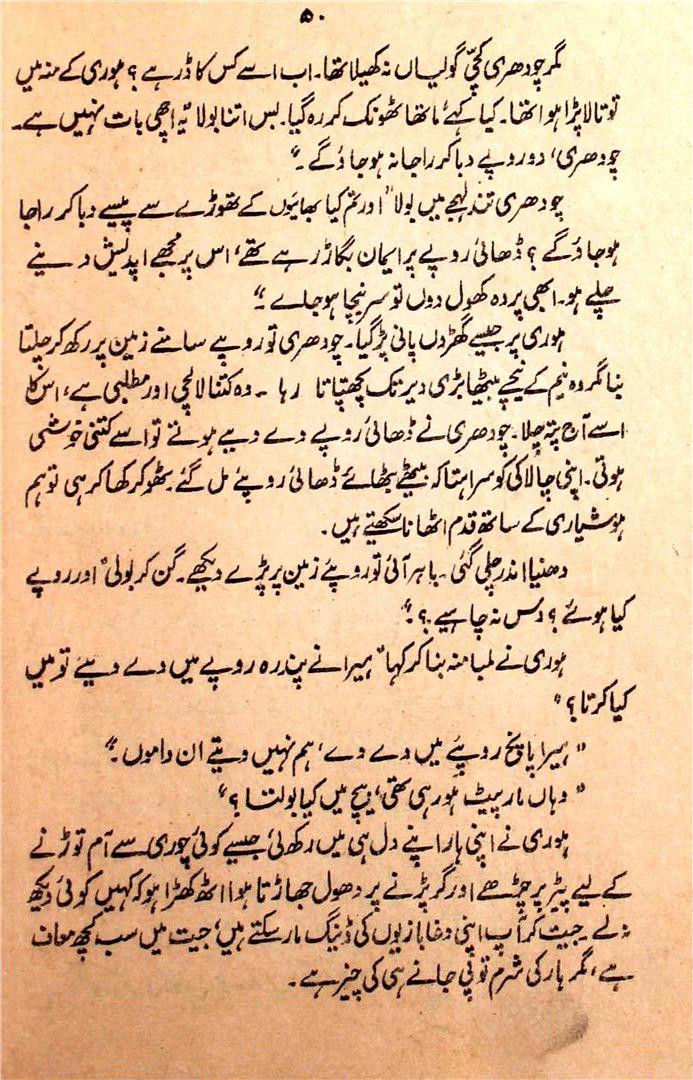 ۵۰
مگر چودھری کچّی گولیاں نہ کھیلا تھا۔ اب اسے کس کا ڈر ہے؟ ہوری کے منہ میں
تو تالا پڑا ہوا تھا۔ کیا کہے، ماتھا ٹھونک کر رہ گیا۔ بس اتنا بولا "یہ اچھی بات نہیں ہے۔
چودھری، دو روپے دبا کر راجا نہ ہو جاؤ گے۔"
چودھری تند لہجے میں بولا "اور تم کیا بھائیوں کے تھوڑے سے پیسے دبا کر راجا
ہو جاؤ گے؟ ڈھائی روپے پر ایمان بگاڑ رہے تھے، اس پر مجھے اپدیش دینے
چلے ہو۔ ابھی پردہ کھول دوں تو سر نیچا ہو جائے۔"
ہوری پر جیسے گھڑوں پانی پڑ گیا۔ چودھری تو روپے سامنے زمین پر رکھ کر چلتا
بنا مگر وہ نیم کے نیچے بیٹھا بڑی دیر تک پچھتاتا رہا ۔ وہ کتنا لالچی اور مطلبی ہے، اس کا
اسے آج پتہ چلا۔ چودھری نے ڈھائی روپے دے دیے ہوتے تو اسے کتنی خوشی
ہوتی۔ اپنی چالاکی کو سراہتا کہ بیٹھے بٹھائے ڈھائی روپے مل گئے۔ ٹھوکر کھا کر ہی تو ہم
ہوشیاری کے ساتھ قدم اٹھانا سیکھتے ہیں۔
دھنیا اندر چلی گئی۔ باہر آئی تو روپئے زمین پر پڑے دیکھے۔ گن کر بولی "اور روپے
کیا ہوئے؟ دس نہ چاہیے؟۔"
ہوری نے لمبا منہ بنا کر کہا "ہیرا نے پندرہ روپے میں دے دیئے تو میں
کیا کرتا؟"
"ہیرا پانچ روپئے میں دے دے، ہم نہیں دیتے ان داموں۔"
"وہاں مار پیٹ ہو رہی تھی، بیچ میں کیا بولتا؟"
ہوری نے اپنی ہار اپنے دل ہی میں رکھ لی، جیسے کوئی چوری سے آم توڑنے
کے لیے پیڑ پر چڑھے اور گر پڑنے پر دھول جھاڑتا ہوا اٹھ کھڑا ہو کہ کہیں کوئی دیکھ
نہ لے۔ جیت کر آپ اپنی دغا بازیوں کی ڈینگ مار سکتے ہیں، جیت میں سب کچھ معاف
ہے، مگر ہار کی شرم تو پی جانے ہی کی چیز ہے۔